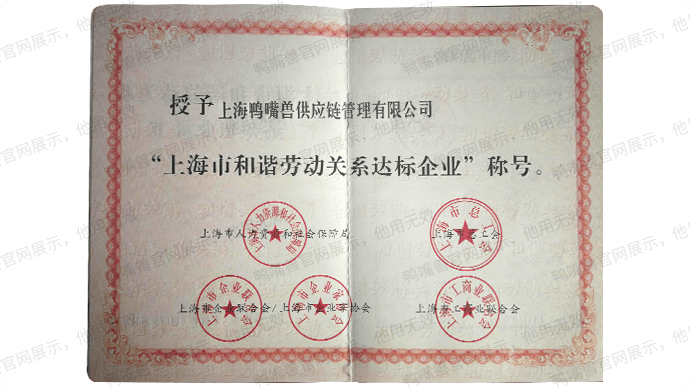 授予 上海鸭嘴兽供应链管理有限公司
“上海市和谐劳动关系达标企业”称号。
上海市人力资源和社会保障局
上海市总工会
上海市企业联合会/上海市企业家协会
上海市工商业联合会
鸭嘴兽官网展示，他用无效